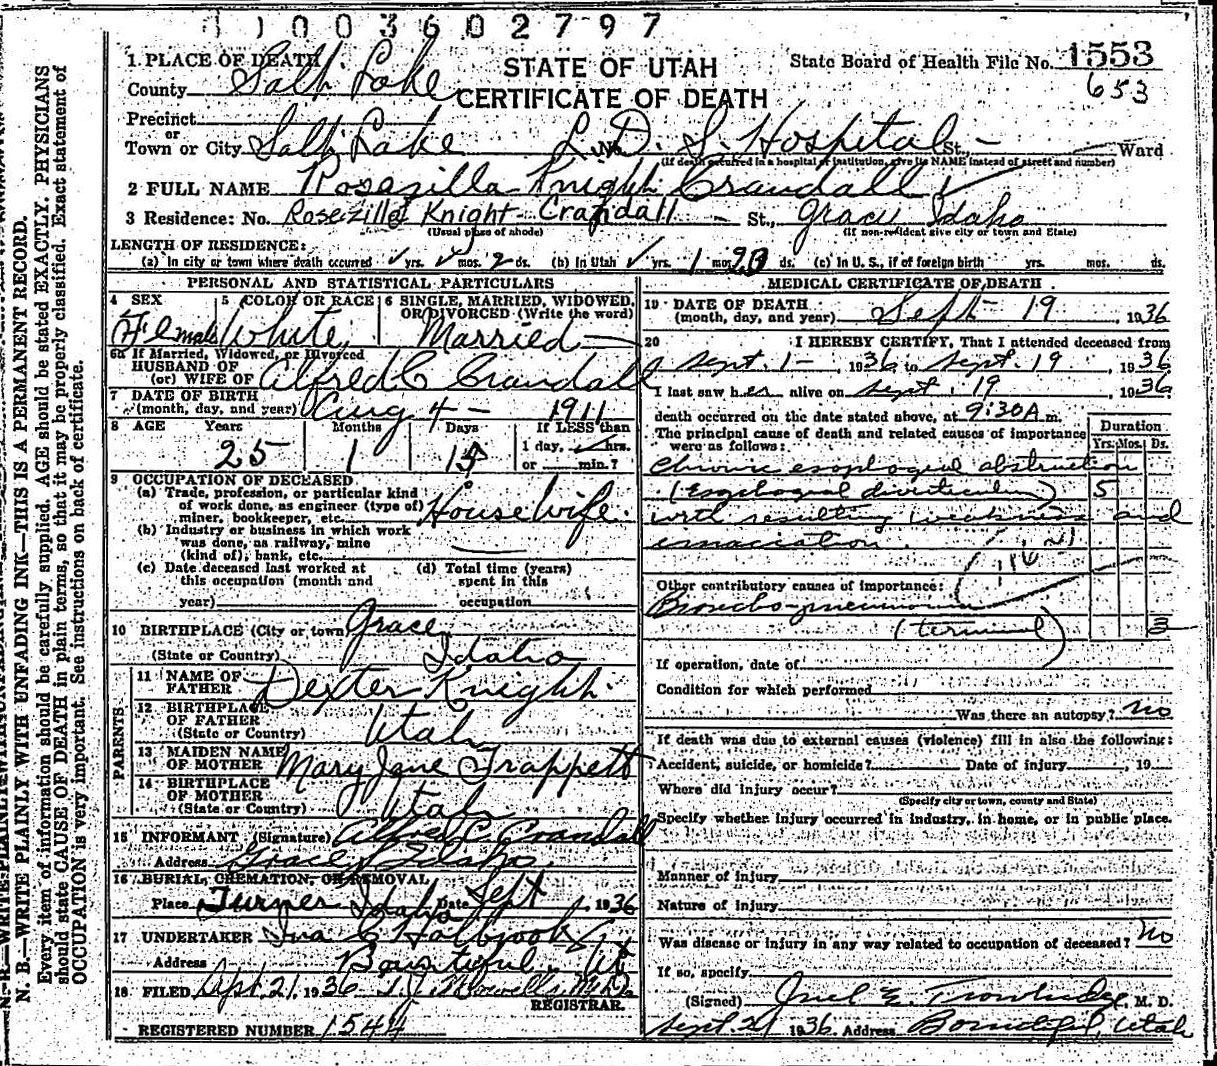 0 1 0 0 3 6 0 2 7 9 7
STATE OF UTAH
CERTIFICATE OF DEATH
State Board of Health File No. 1553
653
1 PLACE OF DEATH
County Salt Lake
Precinct
or
Town or City Salt Lake No. L. D. S. Hospital St., — Ward
(If death occurred in a hospital or institution, give its NAME instead of street and number)
2 FULL NAME Rosezilla Knight Crandall
3 Residence: No. Rosezilla Knight Crandall — St., Grace Idaho
(Usual place of abode) (If non-resident give city or town and State)
LENGTH OF RESIDENCE:
(a) In city or town where death occurred ✓ yrs. ✓ mos. 2 ds. (b) In Utah ✓ yrs. 1 mos. 20 ds. (c) In U. S., if of foreign birth yrs. mos. ds.
PERSONAL AND STATISTICAL PARTICULARS
4 SEX Female
5 COLOR OR RACE White
6 SINGLE, MARRIED, WIDOWED, OR DIVORCED (Write the word) Married
6a If Married, Widowed, or Divorced
HUSBAND OF
(or) WIFE OF Alfred C Crandall
7 DATE OF BIRTH
(month, day, and year) Aug 4 — 1911
8 AGE Years 25 Months 1 Days 15 If LESS than
1 day, hrs.
or min.?
9 OCCUPATION OF DECEASED
(a) Trade, profession, or particular kind
of work done, as engineer (type of)
miner, bookkeeper, etc. Housewife.
(b) Industry or business in which work
was done, as railway, mine
(kind of), bank, etc.
(c) Date deceased last worked at
this occupation (month and
year)
(d) Total time (years)
spent in this
occupation
10 BIRTHPLACE (City or town) Grace
(State or Country) Idaho
PARENTS
11 NAME OF
FATHER Dexter Knight
12 BIRTHPLACE
OF FATHER
(State or Country) Utah
13 MAIDEN NAME
OF MOTHER Mary Jane Trappett
14 BIRTHPLACE
OF MOTHER
(State or Country) Utah
15 INFORMANT (Signature) Alfred C Crandall
Address Grace, Idaho.
16 BURIAL, CREMATION, OR REMOVAL
Place Turner Idaho Date Sept , 1936
17 UNDERTAKER Ina C Holbrook
Address Bountiful. Ut
18 FILED Sept. 21, 1936
REGISTRAR.
REGISTERED NUMBER 1544
MEDICAL CERTIFICATE OF DEATH
19 DATE OF DEATH
(month, day, and year) Sept- 19 , 1936
20 I HEREBY CERTIFY, That I attended deceased from
Sept. 1 — , 1936 to Sept. 19 , 1936.
I last saw her alive on Sept. 19 , 1936.
death occurred on the date stated above, at 9:30A m.
The principal cause of death and related causes of importance
were as follows:
Duration
Yrs. Mos. Ds.
Chronic esophageal obstruction
(Esophageal diverticulum) 5
with resulting weakness and
emaciation.
Other contributory causes of importance:
Broncho-pneumonia
(terminal) 3
If operation, date of
Condition for which performed
Was there an autopsy? No
If death was due to external causes (violence) fill in also the following:
Accident, suicide, or homicide? Date of injury , 19
Where did injury occur?
(Specify city or town, county and State)
Specify whether injury occurred in industry, in home, or in public place.
Manner of injury
Nature of injury
Was disease or injury in any way related to occupation of deceased? No
If so, specify
(Signed) Joel E. Trowbridge, M. D.
Sept. 21 1936. Address Bountiful, Utah
N. B.—WRITE PLAINLY WITH UNFADING INK—THIS IS A PERMANENT RECORD.
Every item of information should be carefully supplied. AGE should be stated EXACTLY. PHYSICIANS
should state CAUSE OF DEATH in plain terms, so that it may be properly classified. Exact statement of
OCCUPATION is very important. See instructions on back of certificate.